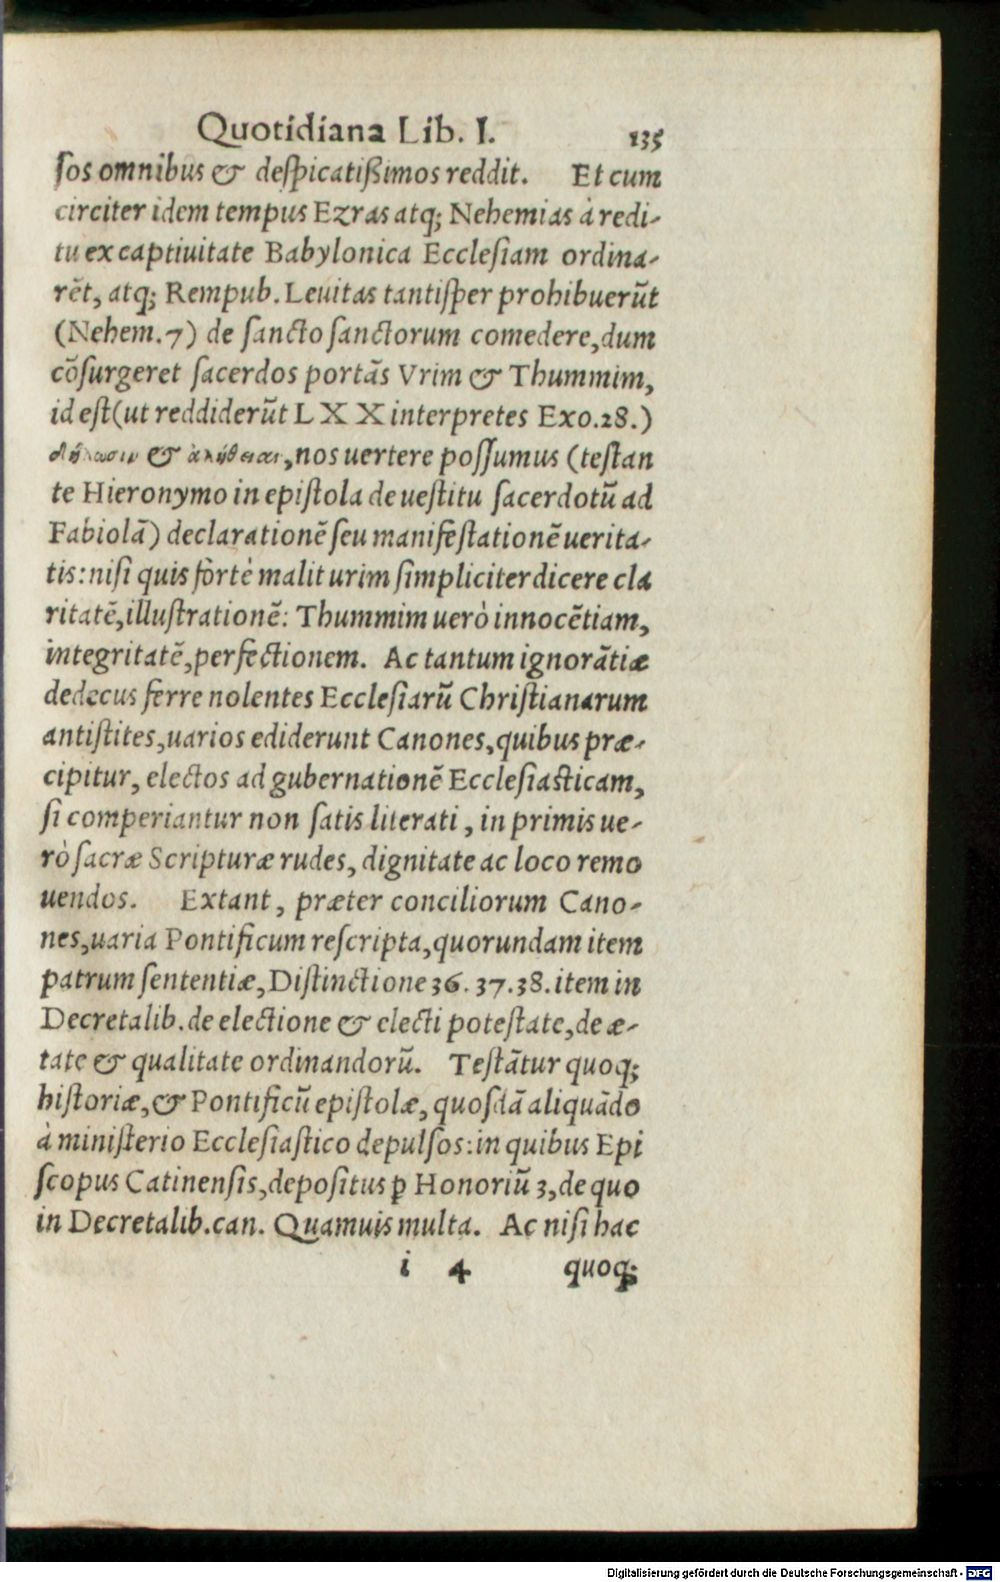 Quotidiana Lib. I. 135
ſos omnibus & deſpicatißimos reddit. Et cum
circiter idem tempus Ezras atq; Nehemias à redi-
tu ex captiuitate Babylonica Eccleſiam ordina-
rẽt, atq; Rempub. Leuitas tantiſper prohibuerũt
(Nehem. 7) de ſancto ſanctorum comedere, dum
cõſurgeret ſacerdos portãs Vrim & Thummim,
id eſt (ut reddiderũt LXX interpretes Exo. 28.)
δήλωσιν & ἀλήθειαν, nos uertere poſſumus (teſtan
te Hieronymo in epiſtola de ueſtitu ſacerdotũ ad
Fabiolã) declarationẽ ſeu manifeſtationẽ uerita-
tis: niſi quis fortè malit urim ſimpliciter dicere cla
ritatẽ, illuſtrationẽ: Thummim uerò innocẽtiam,
integritatẽ, perfectionem. Ac tantum ignorãtiæ
dedecus ferre nolentes Eccleſiarũ Chriſtianarum
antiſtites, uarios ediderunt Canones, quibus præ-
cipitur, electos ad gubernationẽ Eccleſiaſticam,
ſi comperiantur non ſatis literati, in primis ue-
rò ſacræ Scripturæ rudes, dignitate ac loco remo
uendos. Extant, præter conciliorum Cano-
nes, uaria Pontificum reſcripta, quorundam item
patrum ſententiæ, Diſtinctione 36. 37. 38. item in
Decretalib. de electione & electi poteſtate, de æ-
tate & qualitate ordinandorũ. Teſtãtur quoq;
hiſtoriæ, & Pontificũ epiſtolæ, quoſdã aliquãdo
à miniſterio Eccleſiaſtico depulſos: in quibus Epi
ſcopus Catinenſis, depoſitus ꝑ Honoriũ 3, de quo
in Decretalib. can. Quamuis multa. Ac niſi hac
i 4 quoq;
Digitalisierung gefördert durch die Deutsche Forschungsgemeinschaft - DFG